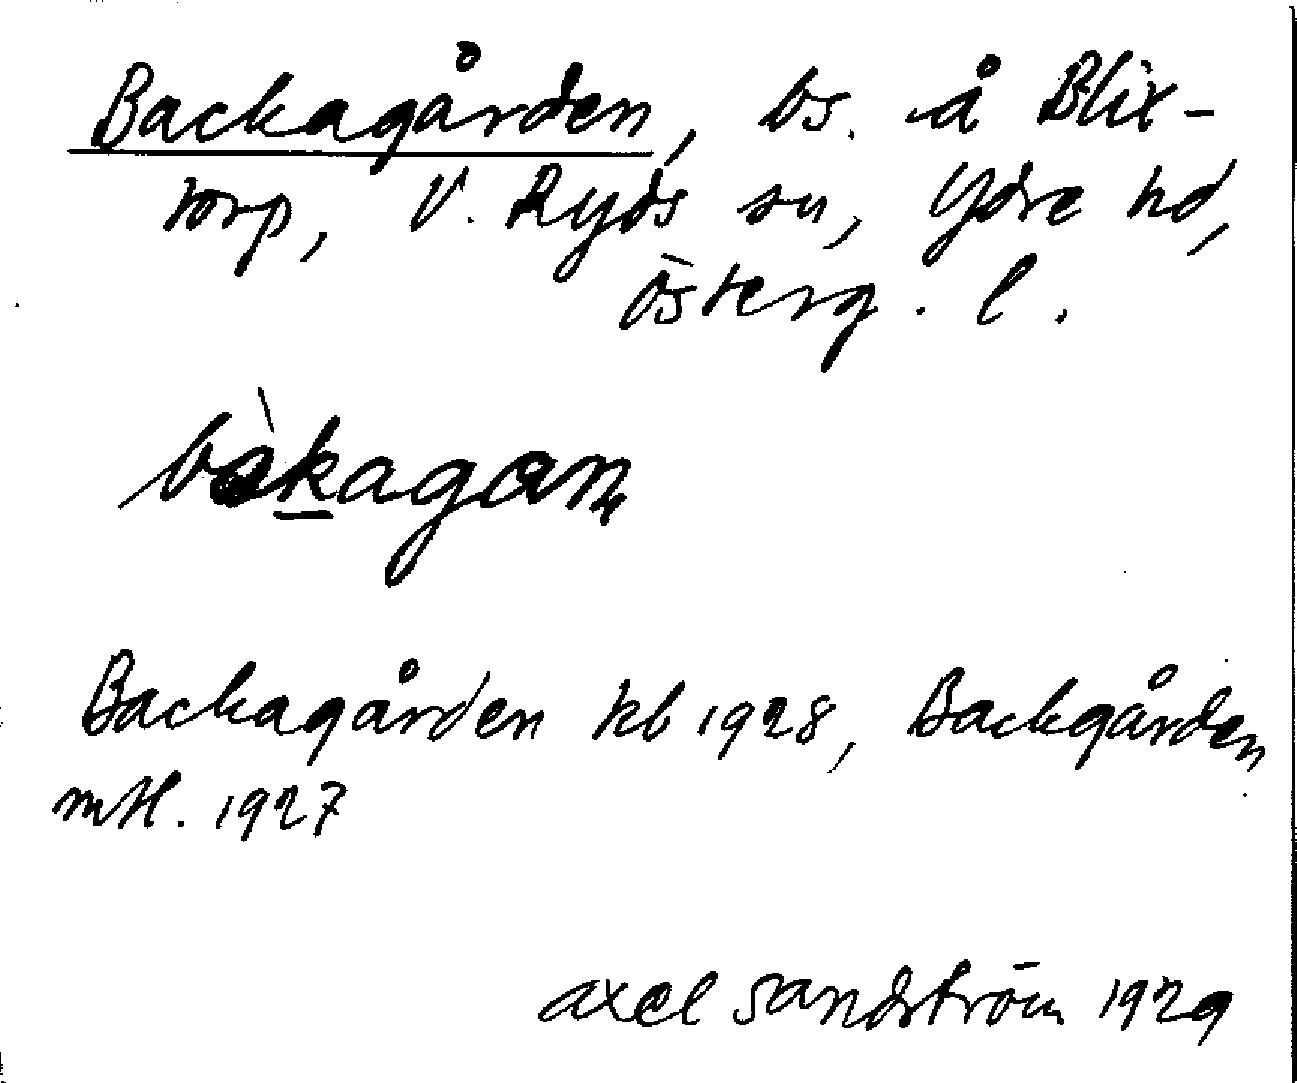 Backagården, bs. å Blix-
torp, V. Ryds sn, Ydre hd,
Österg. l.
bàkagaṇ
Backagården kb 1928, Backgården
mtl. 1927
Axel Sandström 1929